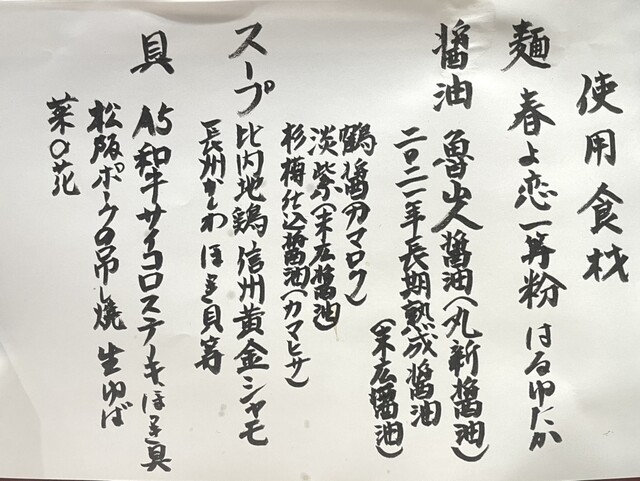 使用食材
麺 春よ恋一等粉 はるゆたか
醤油 魯山人醤油(丸新醤油)
二〇二一年長期熟成醤油
(末広醤油)
鶴醤(カマロク)
淡紫(末広醤油)
杉樽仕込醤油(カマヒサ)
スープ 比内地鶏 信州黄金シャモ
長州かしわ ほっき貝等
具 A5和牛サイコロステーキ ほっき貝
松阪ポークの吊し焼 生ゆば
菜の花